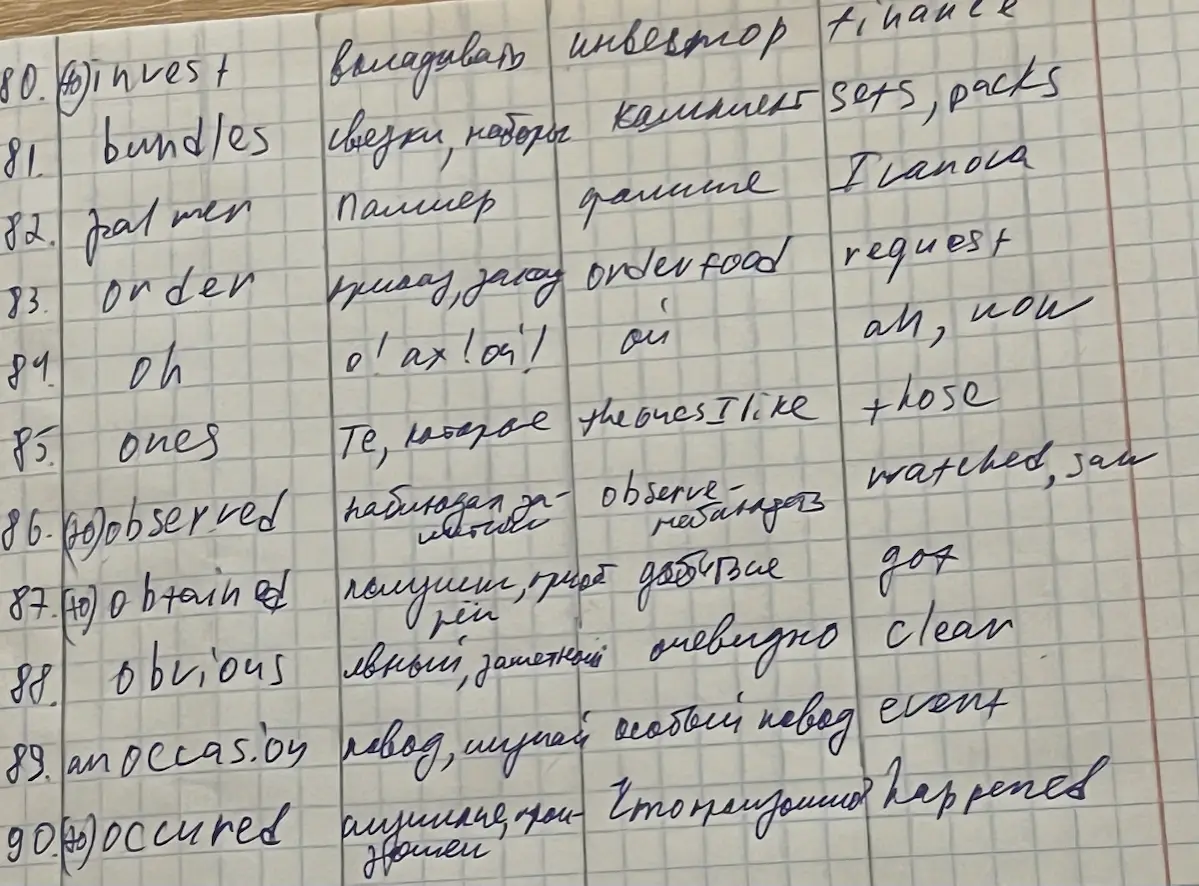 80. (to) invest вкладывать инвестор finance
81. bundles связки, наборы комплект sets, packs
82. palmer палмер фамилие Ivanova
83. order приказ, заказ order food request
84. oh о! ах! ой! ой ah, wow
85. ones те, которые the ones I like those
86. (to) observed наблюдал, за- observe - watched, saw
метил наблюдать
87. (to) obtained получил, приоб добытые got
рёл
88. obvious явный, заметный очевидно clear
89. an occasion повод, случай особый повод event
90. (to) occured случилось, прои- Что произошло happened
зошел